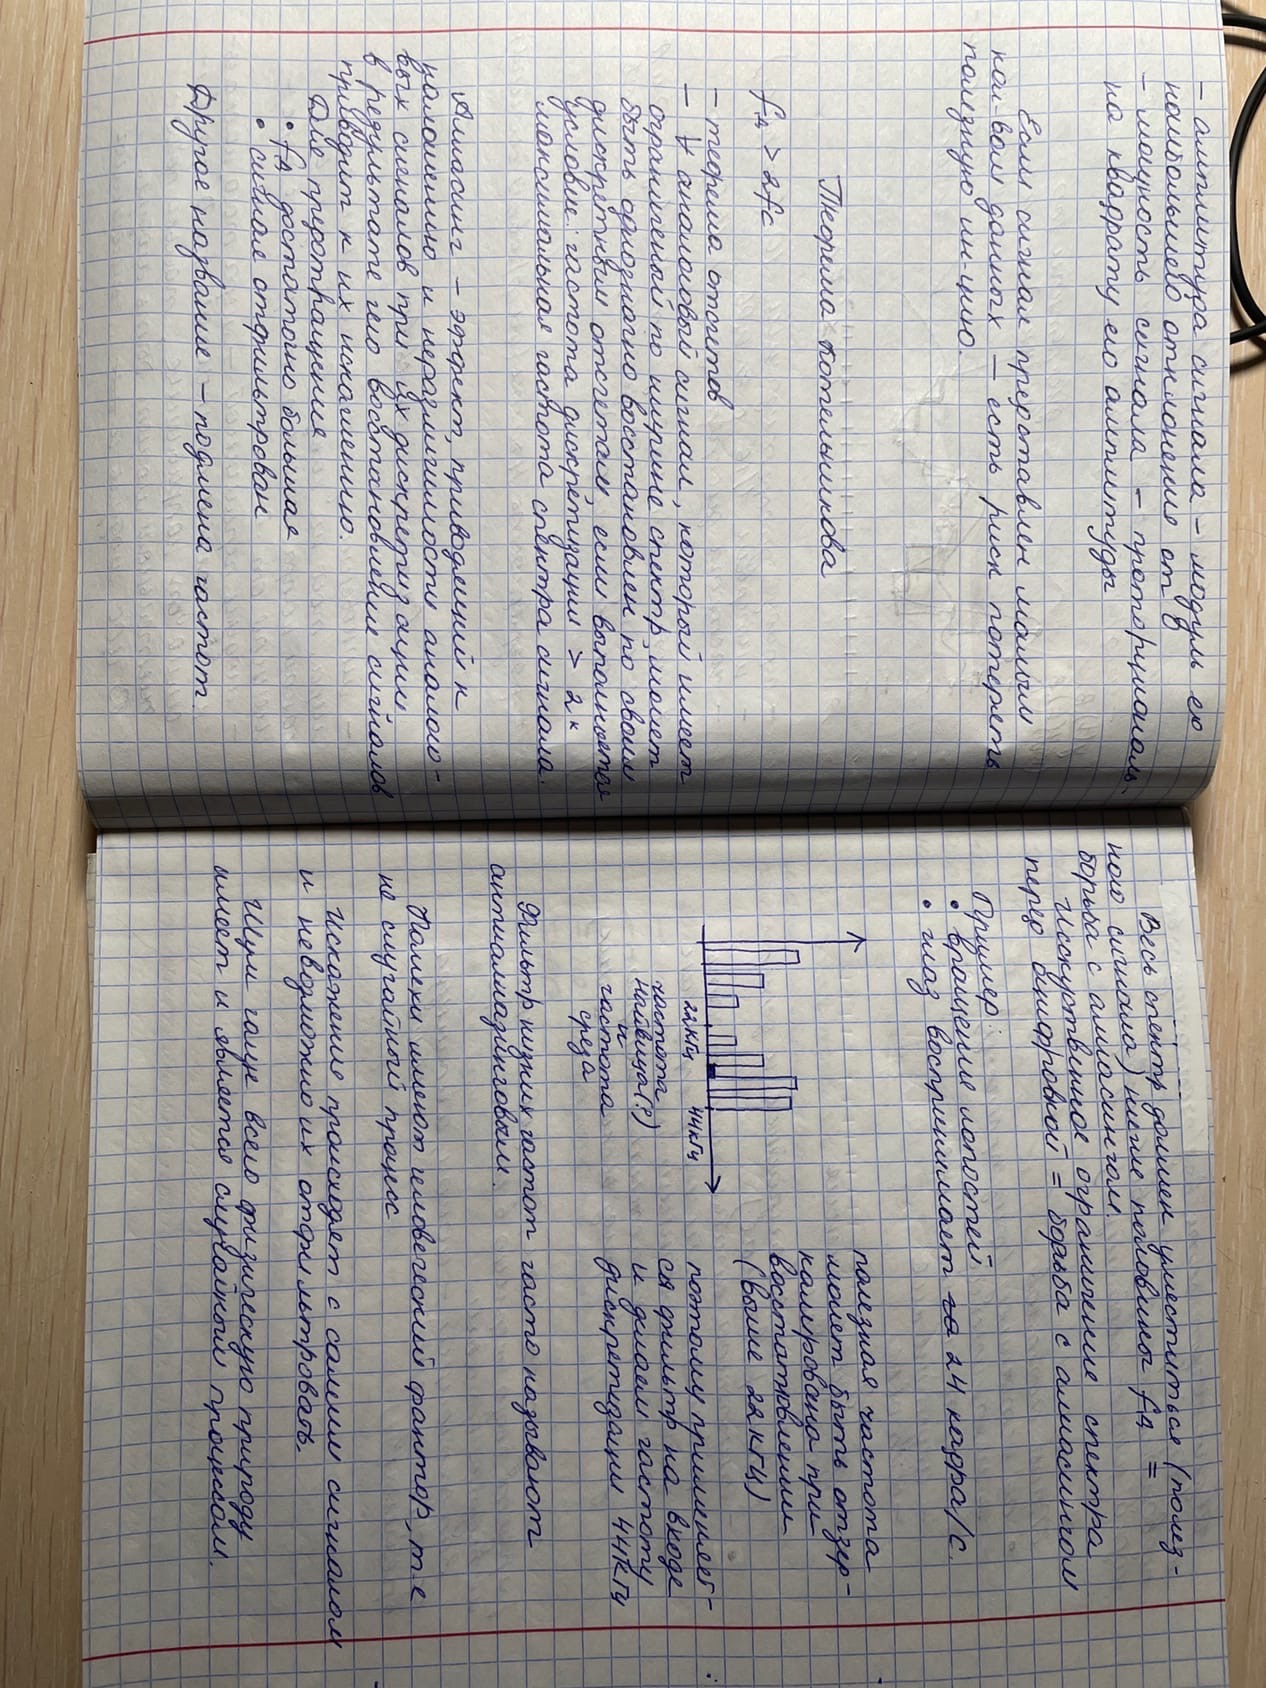 – амплитуда сигнала – модуль его
наибольшего отклонения от 0
– мощность сигнала – пропорциональ-
на квадрату его амплитуды
Если сигнал представлен малым
кол-вом данных – есть риск потерять
полезную ин-цию.
Теорема Котельникова
fд > 2fс
– теорема отсчетов
– ∀ аналоговый сигнал, который имеет
ограниченый по ширине спектр, может
быть однозначно восстановлен по своим
дискретным отсчетам, если выполняется
условие: частота дискретизации > 2 ×
максимальная частота спектра сигнала.
Алиасинг – эффект, приводящий к
наложению и неразличимости аналого-
вых сигналов при их дискретизации
в результате чего восстановление сигналов
приводит к их искажению.
Для предотвращения
• fд достаточно большая
• сигнал отфильтрован
Другое название – подмена частот.
Весь спектр должен уместиться (полез-
ного сигнала) ниже половины fд =
борьба с алиасингом.
Исскуственное ограничение спектра
перед оцифровкой = борьба с алиасингом
Пример:
• вращение лопостей
• глаз воспринимает 24 кадра/с.
22кГц 44кГц
частота
Найквица(?)
и
частота
среза
полезная частота
может быть отзер-
калирована при
восстановлении
(выше 22 кГц)
поэтому применяет-
ся фильтр на входе
и делаем частоту
дискретизации 44кГц
Фильтр низких частот часто называют
антиалиазинговым.
Помехи имеют человеческий фактор, т.е
не случайный процесс
Искажение происходят с самим сигналом
и невозможно их отфильтровать.
Шум чаще всего физическую природу
имеет и является случайным процессом.